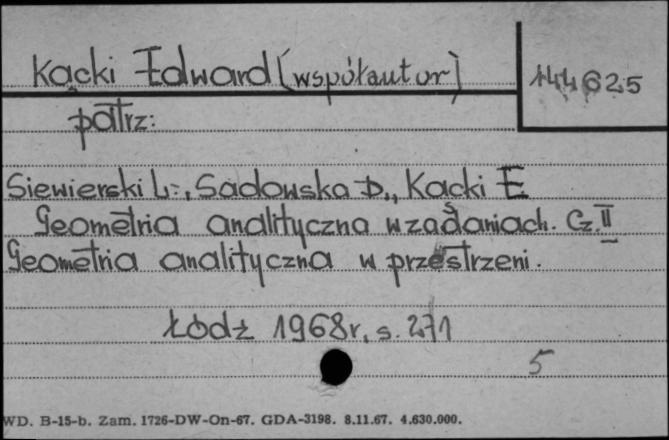 Kącki Edward (współautor)
144625
patrz:
Siewierski L., Sadowska D., Kącki E
Geometria analityczna w zadaniach. Cz. II
Geometria analityczna w przestrzeni.
Łódź 1968r, s. 271
5
WD. B-15-b. Zam. 1726-DW-On-67. GDA-3198. 8.11.67. 4.630.000.